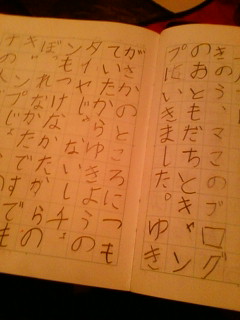 きのう、ママのブログ
のおともだちとキャン
プにいきました。ゆき
がさかのところにつも
ていたからゆきようの
タイヤじゃないしチェ
ンもつけなかたからの
ぼれなかたです。でも